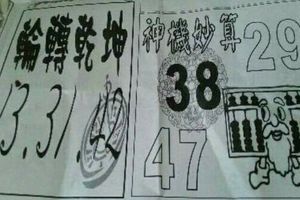 輪轉乾坤
13.31.42
神機妙算
29
38
47